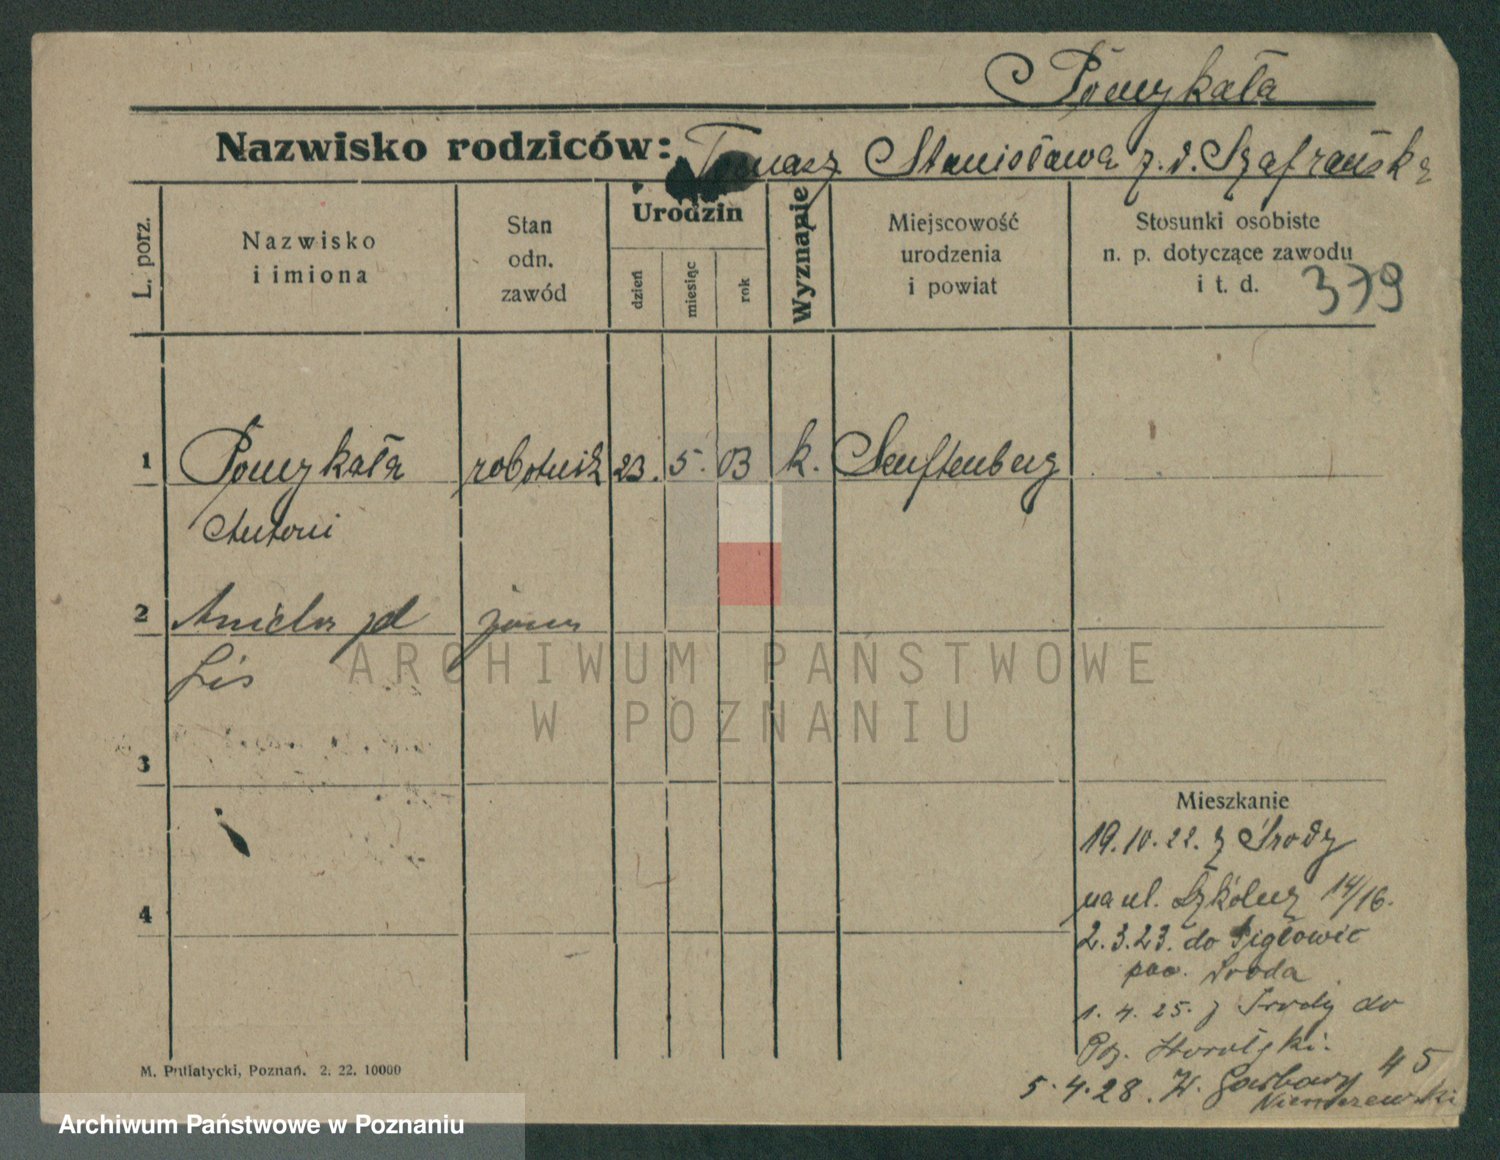 Pomykała
Nazwisko rodziców: Tomasz Stanisława z.d. Szafrańska
L. porz.
Nazwisko
i imiona
Stan
odn.
zawód
Urodzin
dzień
miesiąc
rok
Wyznanie
Miejscowość
urodzenia
i powiat
Stosunki osobiste
n. p. dotyczące zawodu
i t. d.
379
1 Pomykała robotnik 23. 5. 03 k. Senftenberg
Antoni
2 Aniela zd żona
Lis
3
4
Mieszkanie
19.10.22. z Środy
na ul. Szkolną 14/16.
2.3.23. do Pigłowic
pow. Środa
1. 4. 25. z Środy do
45
5.4.28. W. Garbary
Niemczewski
M. Putiatycki, Poznań. 2. 22. 10000
ARCHIWUM PAŃSTWOWE
W POZNANIU
Archiwum Państwowe w Poznaniu